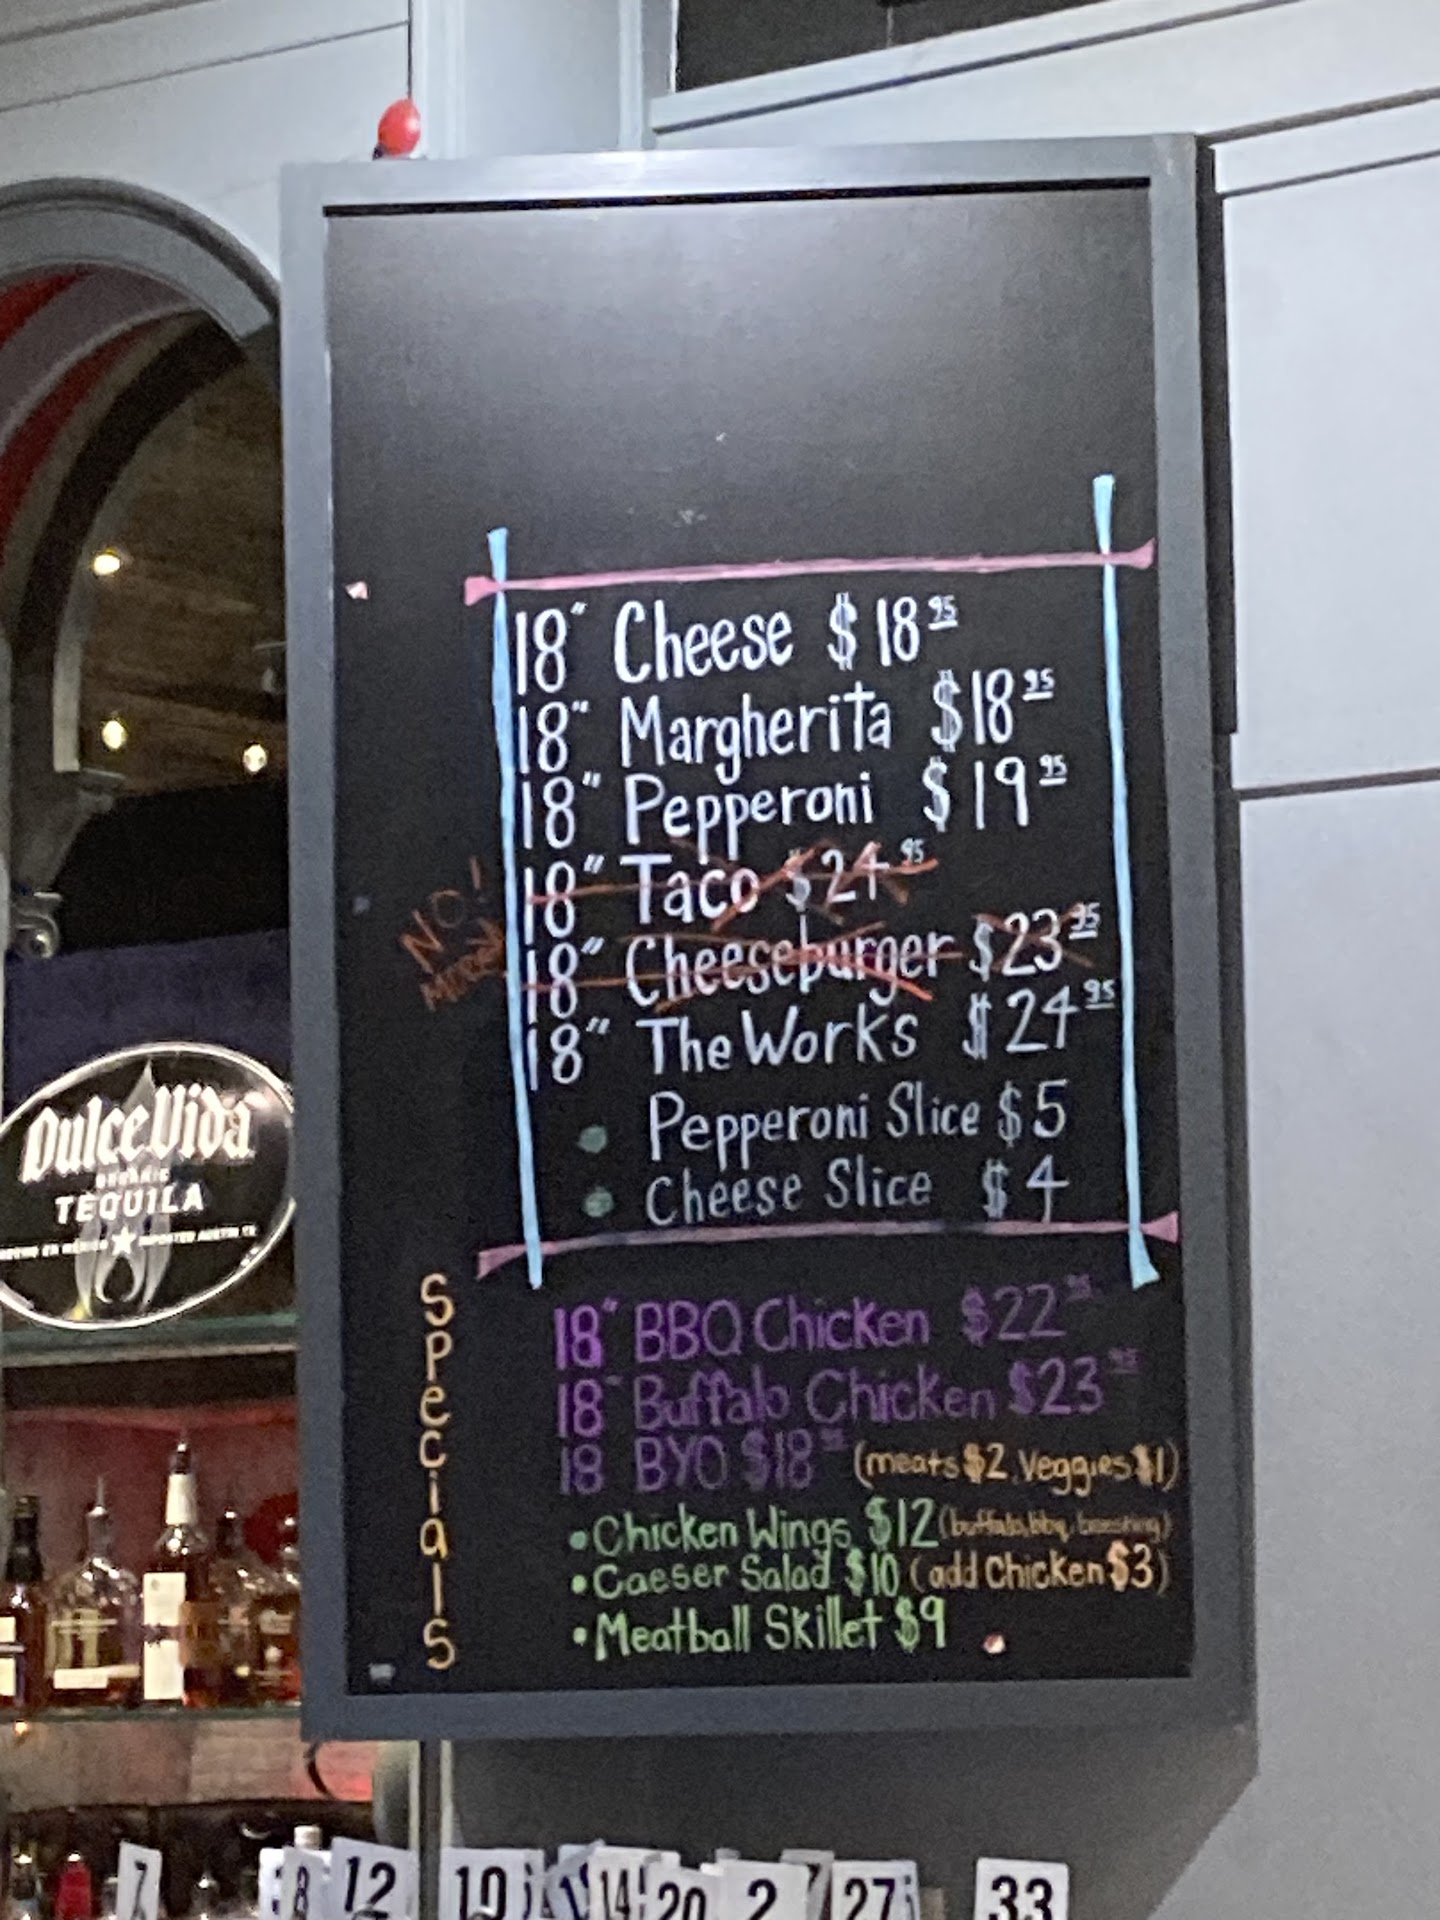 18" Cheese $18.95
18" Margherita $18.95
18" Pepperoni $19.95
NO!
18" Taco $24.95
18" Cheeseburger $23.95
18" The Works $24.95
• Pepperoni Slice $5
• Cheese Slice $4
Specials
18" BBQ Chicken $22.95
18" Buffalo Chicken $23.95
18 BYO $18.95 (meats $2, Veggies $1)
• Chicken Wings $12 (buffalo, bbq,
• Caeser Salad $10 (add Chicken $3)
• Meatball Skillet $9
Dulce Vida
ORGANIC
TEQUILA
7
8
12
10
14
20
2
7
27
33